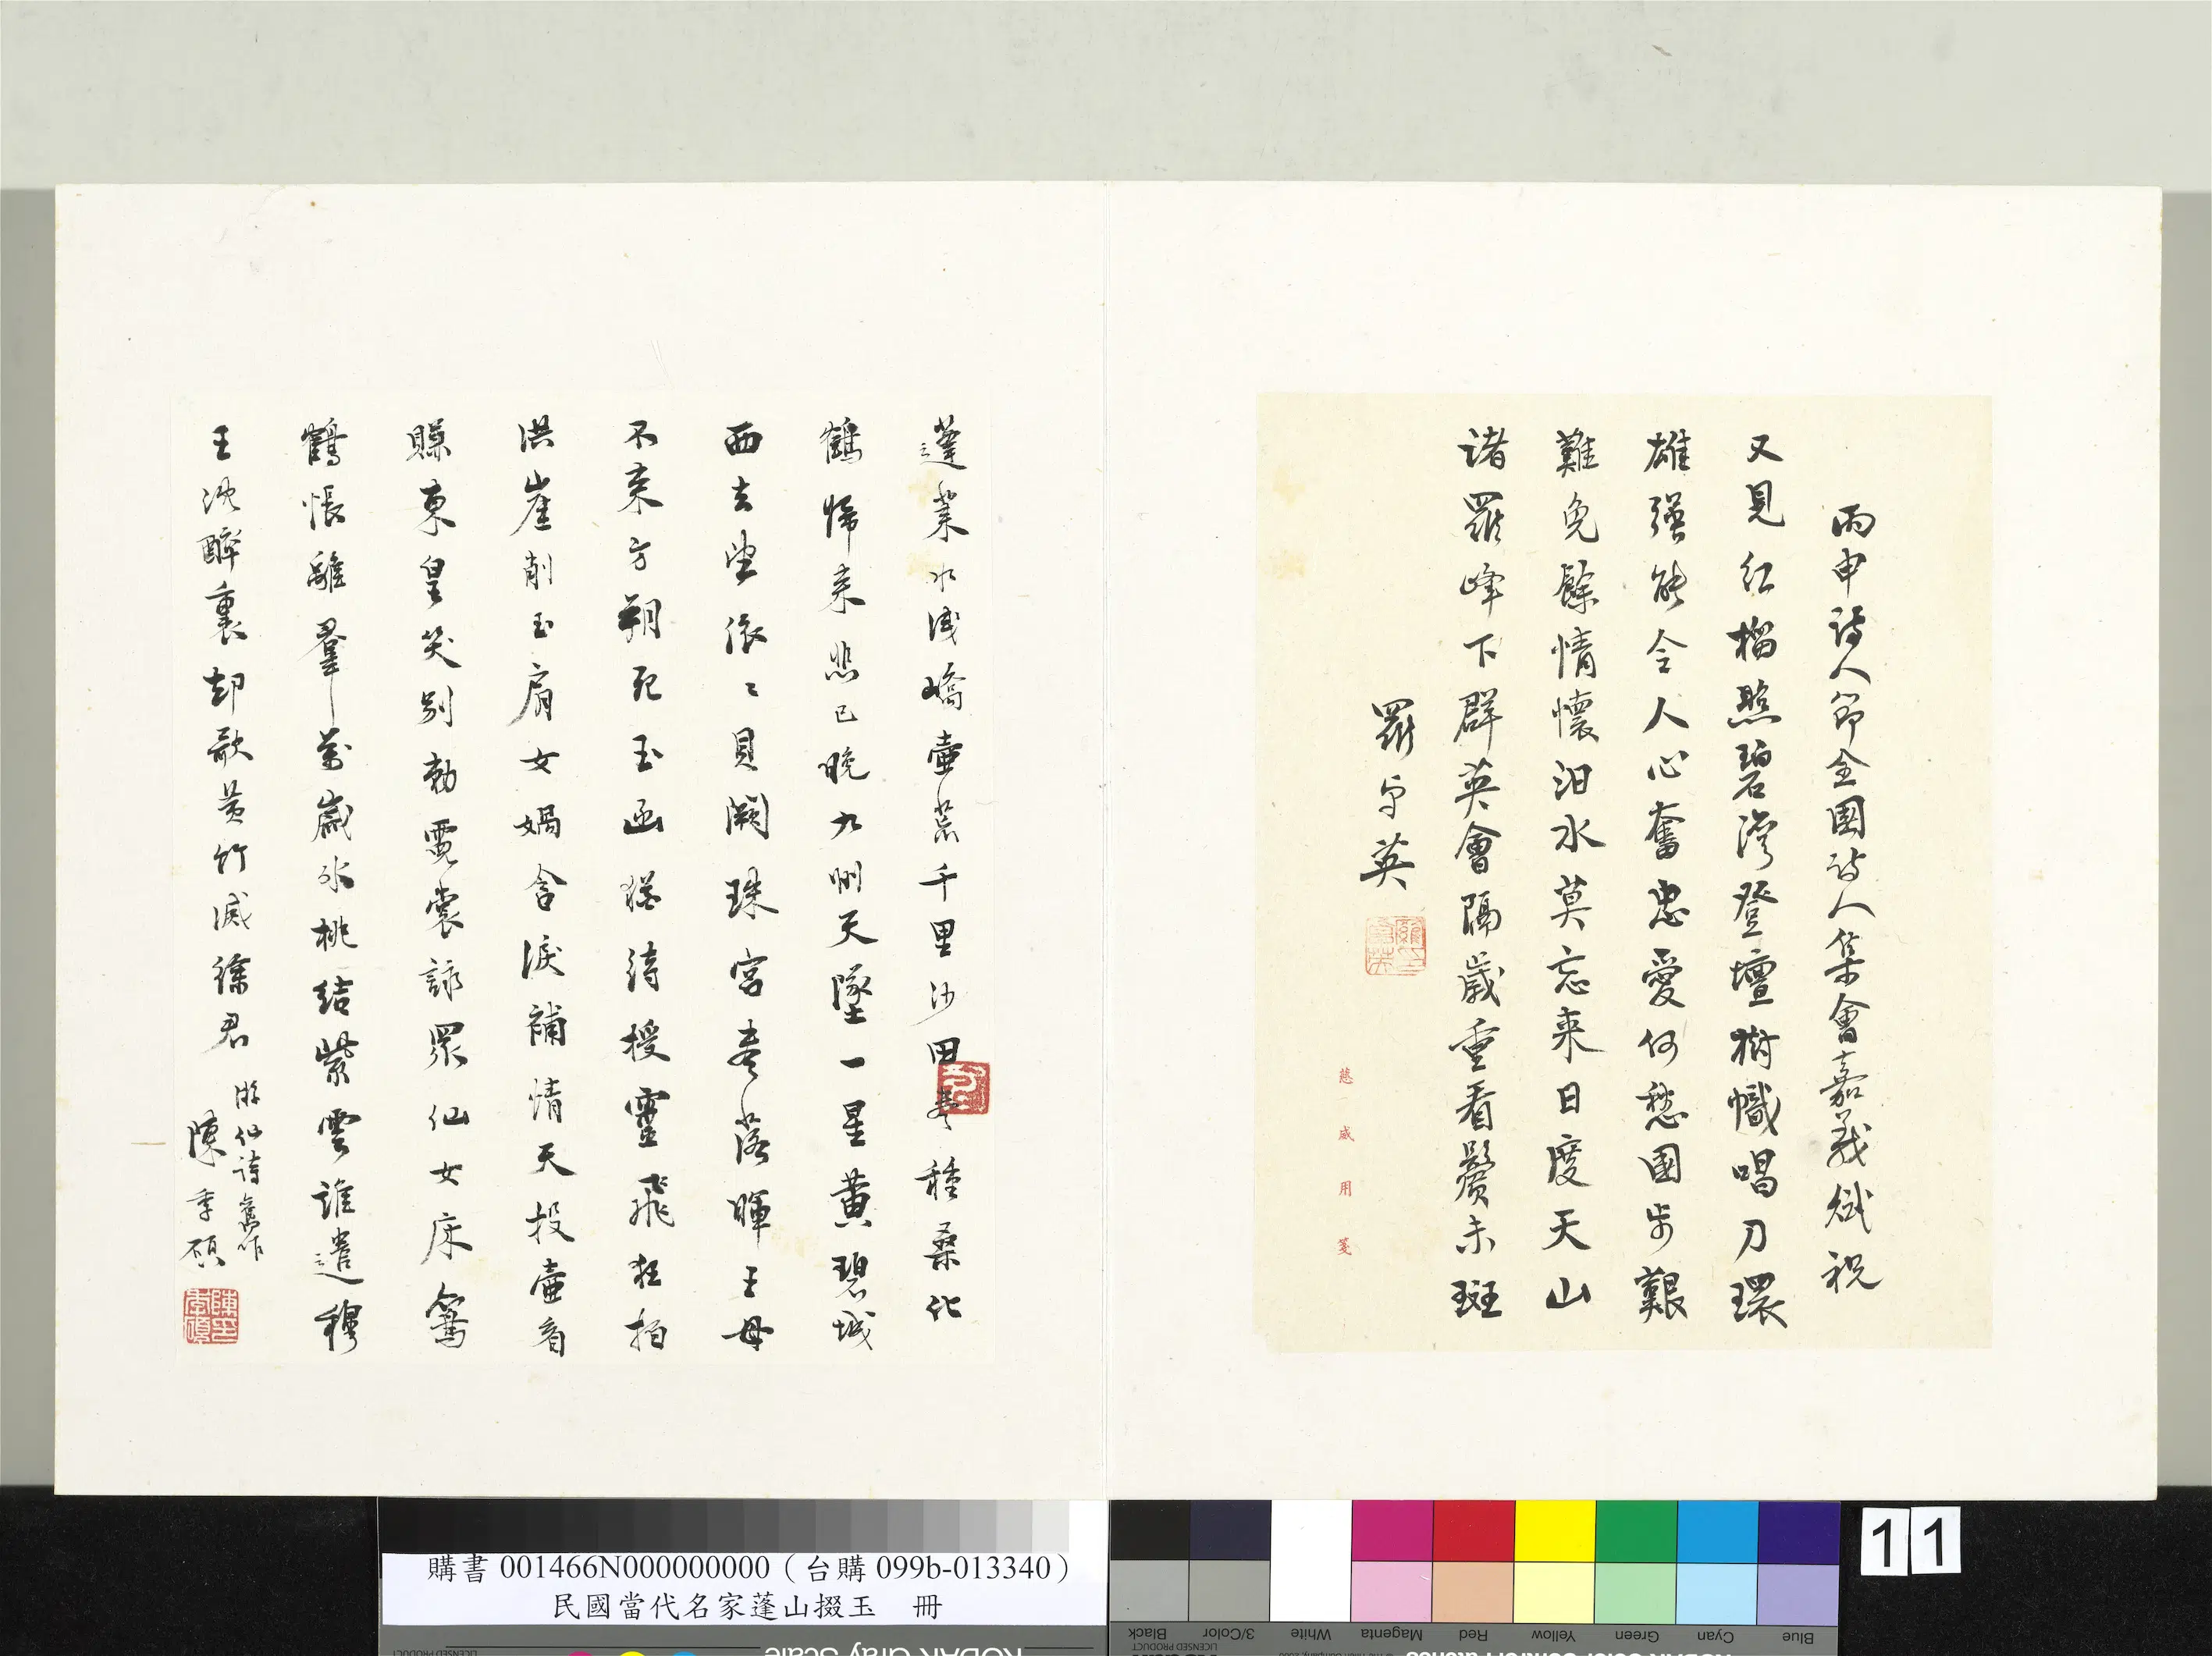 丙申詩人節全國詩人集會嘉義賦祝
又見紅榴照碧灣登壇樹幟唱刀環
雄強能令人心奮忠愛何愁國步艱
難免餘情懷汨水莫忘來日度天山
諸羅峰下群英會隔歲重看鬢未斑
羅卓英
慈威用箋
蓬萊水淺嶠壺荒千里沙田春種桑化
鶴歸來悲已晚九州天墜一星黃碧城
西去望依〻貝闕珠宮春落暉王母
不來方朔死玉函猶待授靈飛狂拍
洪崖削玉肩女媧含淚補情天投壺看
賺東皇笑別勅霓裳詠眾仙女床鸞
鶴悵離羣萬歲冰桃結紫雲誰遣穆
王沈醉裏却歌黃竹減徐君
游仙詩舊作
陳季碩
購書 001466N000000000（台購 099b-013340）
民國當代名家蓬山掇玉 冊
11
KODAK Gray Scale
LICENSED PRODUCT
Black 3/Color White Magenta Red Yellow Green Cyan Blue
LICENSED PRODUCT